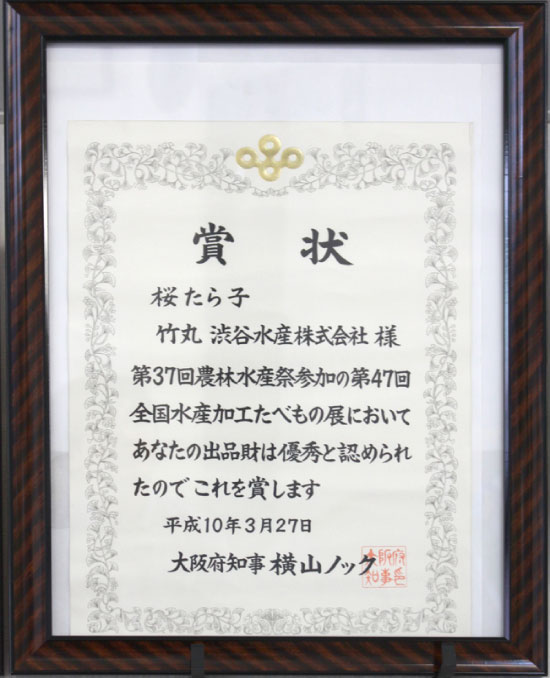 賞状
桜たら子
竹丸 渋谷水産株式会社 様
第37回農林水産祭参加の第47回
全国水産加工たべもの展において
あなたの出品財は優秀と認められ
たのでこれを賞します
平成10年3月27日
大阪府知事 横山ノック
大阪府知事之印